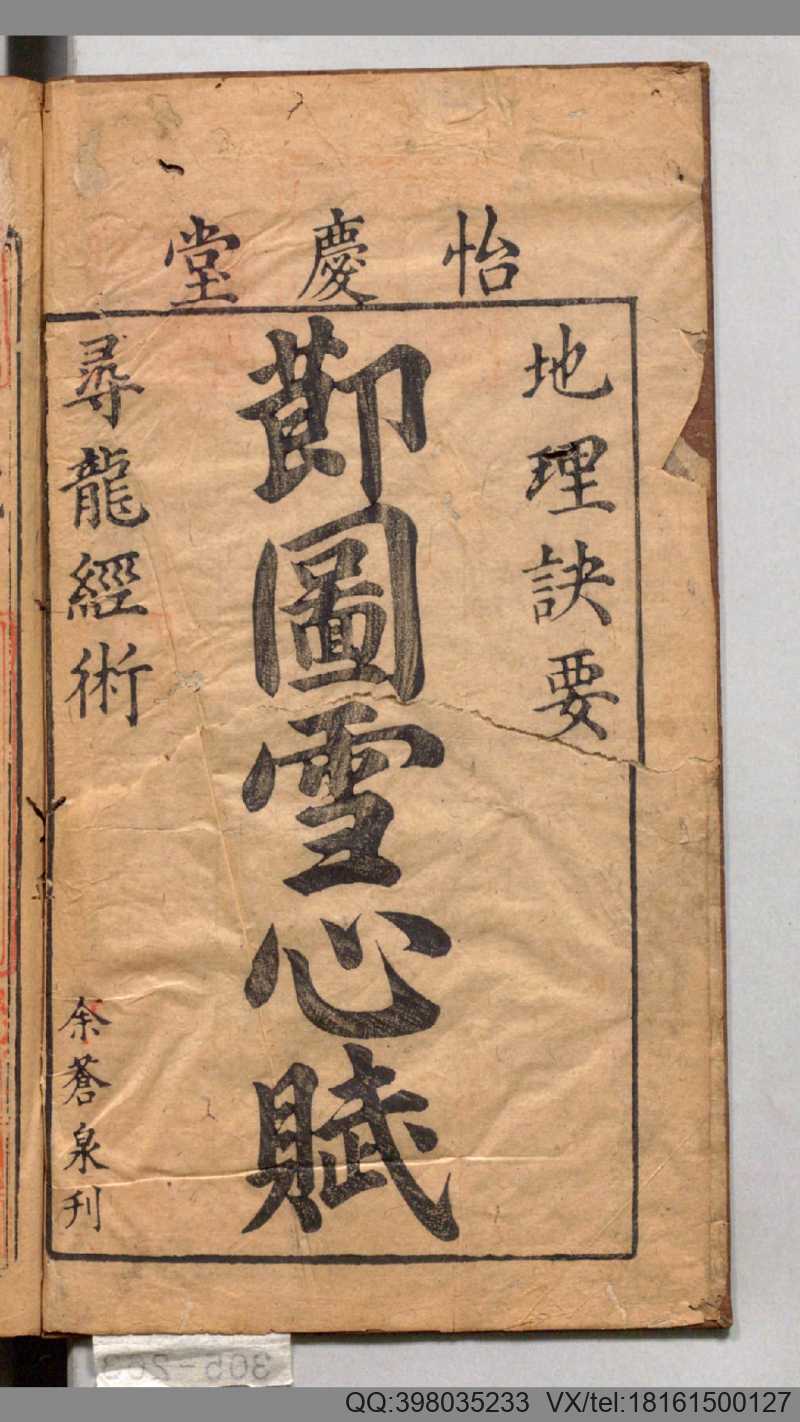 怡慶堂
地理訣要
莭圖雪心賦
尋龍經術
余蒼泉刊
QQ:398035233 VX/tel:18161500127